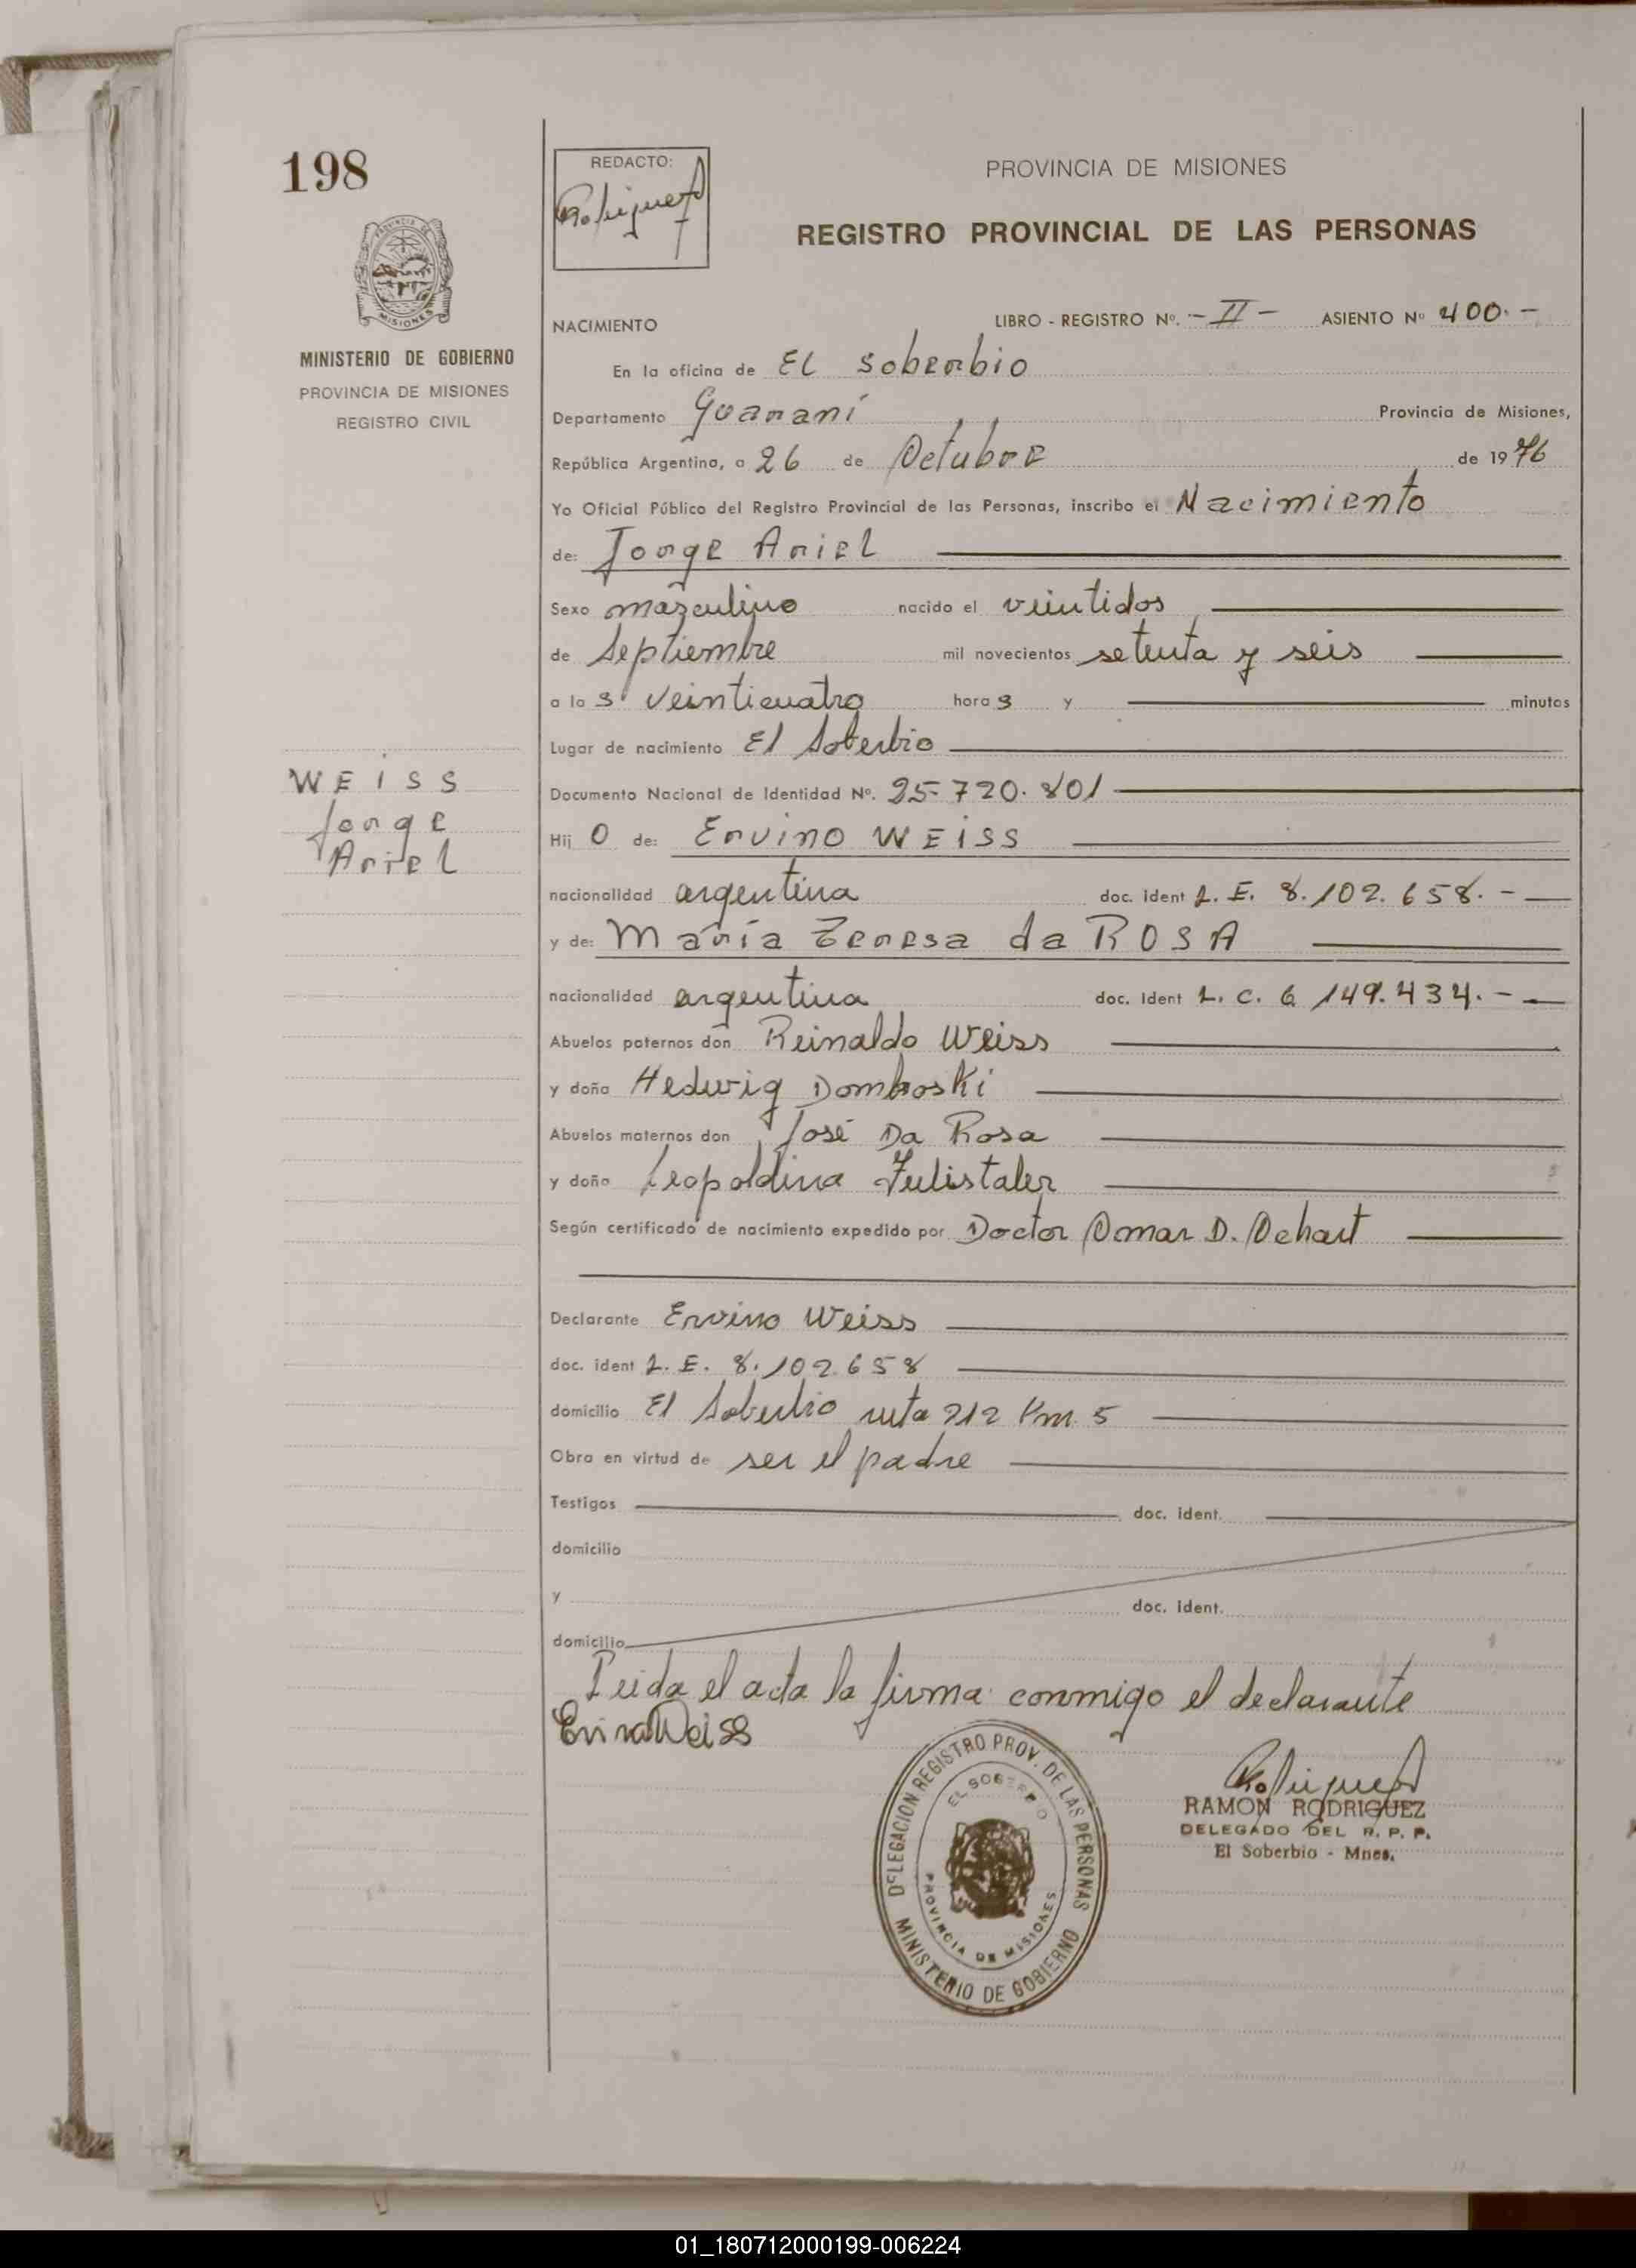 198
REDACTO:
PROVINCIA DE MISIONES
REGISTRO PROVINCIAL DE LAS PERSONAS
MISIONES
MINISTERIO DE GOBIERNO
PROVINCIA DE MISIONES
REGISTRO CIVIL
NACIMIENTO LIBRO - REGISTRO Nº. - II - ASIENTO Nº 400. -
En la oficina de El Soberbio
Departamento Guaraní Provincia de Misiones,
República Argentina, a 26 de Octubre de 1976
Yo Oficial Público del Registro Provincial de las Personas, inscribo el Nacimiento
de: Jorge Ariel
Sexo masculino nacido el veintidos
de Septiembre mil novecientos setenta y seis
a las veinticuatro horas y minutos
Lugar de nacimiento El Soberbio
WEISS
Jorge
Ariel
Documento Nacional de Identidad Nº. 25.720.801
Hijo de: Ervino WEISS
nacionalidad argentina doc. ident L. E. 8.102.658. -
y de: María Teresa da ROSA
nacionalidad argentina doc. ident L. C. 6.149.434. -
Abuelos paternos don Reinaldo Weiss
y doña Hedwig Domboski
Abuelos maternos don José Da Rosa
y doña Leopoldina
Según certificado de nacimiento expedido por Doctor Omar D. Ochart
Declarante Ervino Weiss
doc. ident L. E. 8.102.658
domicilio El Soberbio ruta 212 Km 5
Obra en virtud de ser el padre
Testigos doc. ident.
domicilio
y doc. ident.
domicilio
Leida el acta la firma conmigo el declarante
RAMON RODRIGUEZ
DELEGADO DEL R. P. P.
El Soberbio - Mnes.
DELEGACION REGISTRO PROV. DE LAS PERSONAS
EL SOBERBIO
PROVINCIA DE MISIONES
MINISTERIO DE GOBIERNO
01_180712000199-006224